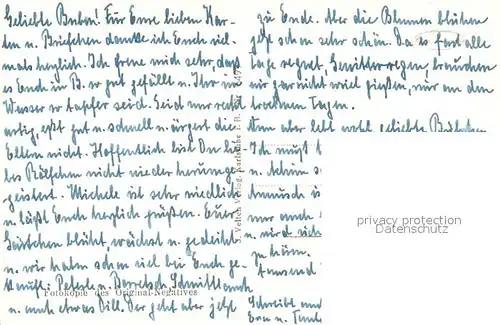 Geliebte Buben! Für Eure lieben Kar-
ten u. Briefchen danke ich Euch viel-
mals herzlich. Ich freue mich sehr, daß
es Euch in B. so gut gefällt u. Ihr im
Wasser so tapfer seid. Seid nur recht
artig, eßt gut u. schnell u. ärgert die
Eltern nicht. Hoffentlich bist Du lie-
bes nicht wieder herumge-
geistert. Michele ist sehr niedlich
u. läßt Euch herzlich grüßen. Euer
Gärtchen blüht, wächst u. gedeiht
u. wir haben schon viel bei Euch ge-
kauft: Peterle u. Borretsch, Schnittlauch
u. auch etwas Dill. Der geht aber jetzt
zu Ende. Aber die Blumen blühen
jetzt schon sehr schön. Da es fast alle
Tage regnet, Gewitterregen, brauchen
wir gar nicht viel gießen, nur an den
trockenen Tagen.
Nun aber lebt wohl, geliebte
Ich muß
u. schön
ist
nur auch
u. wird sich
zu
Tausend
Schreibt
Eva u.
J. Velten Verlag, Karlsruhe i. B.
Fotokopie des Original-Negatives
privacy protection